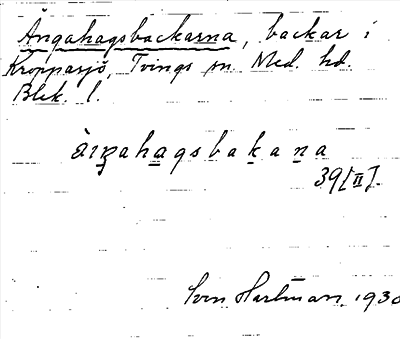 Ängahagsbackarna, backar i
Kropparsjö, Tvings sn. Med. hd.
Blek. l.
39[II].
Sven Hartman, 1930